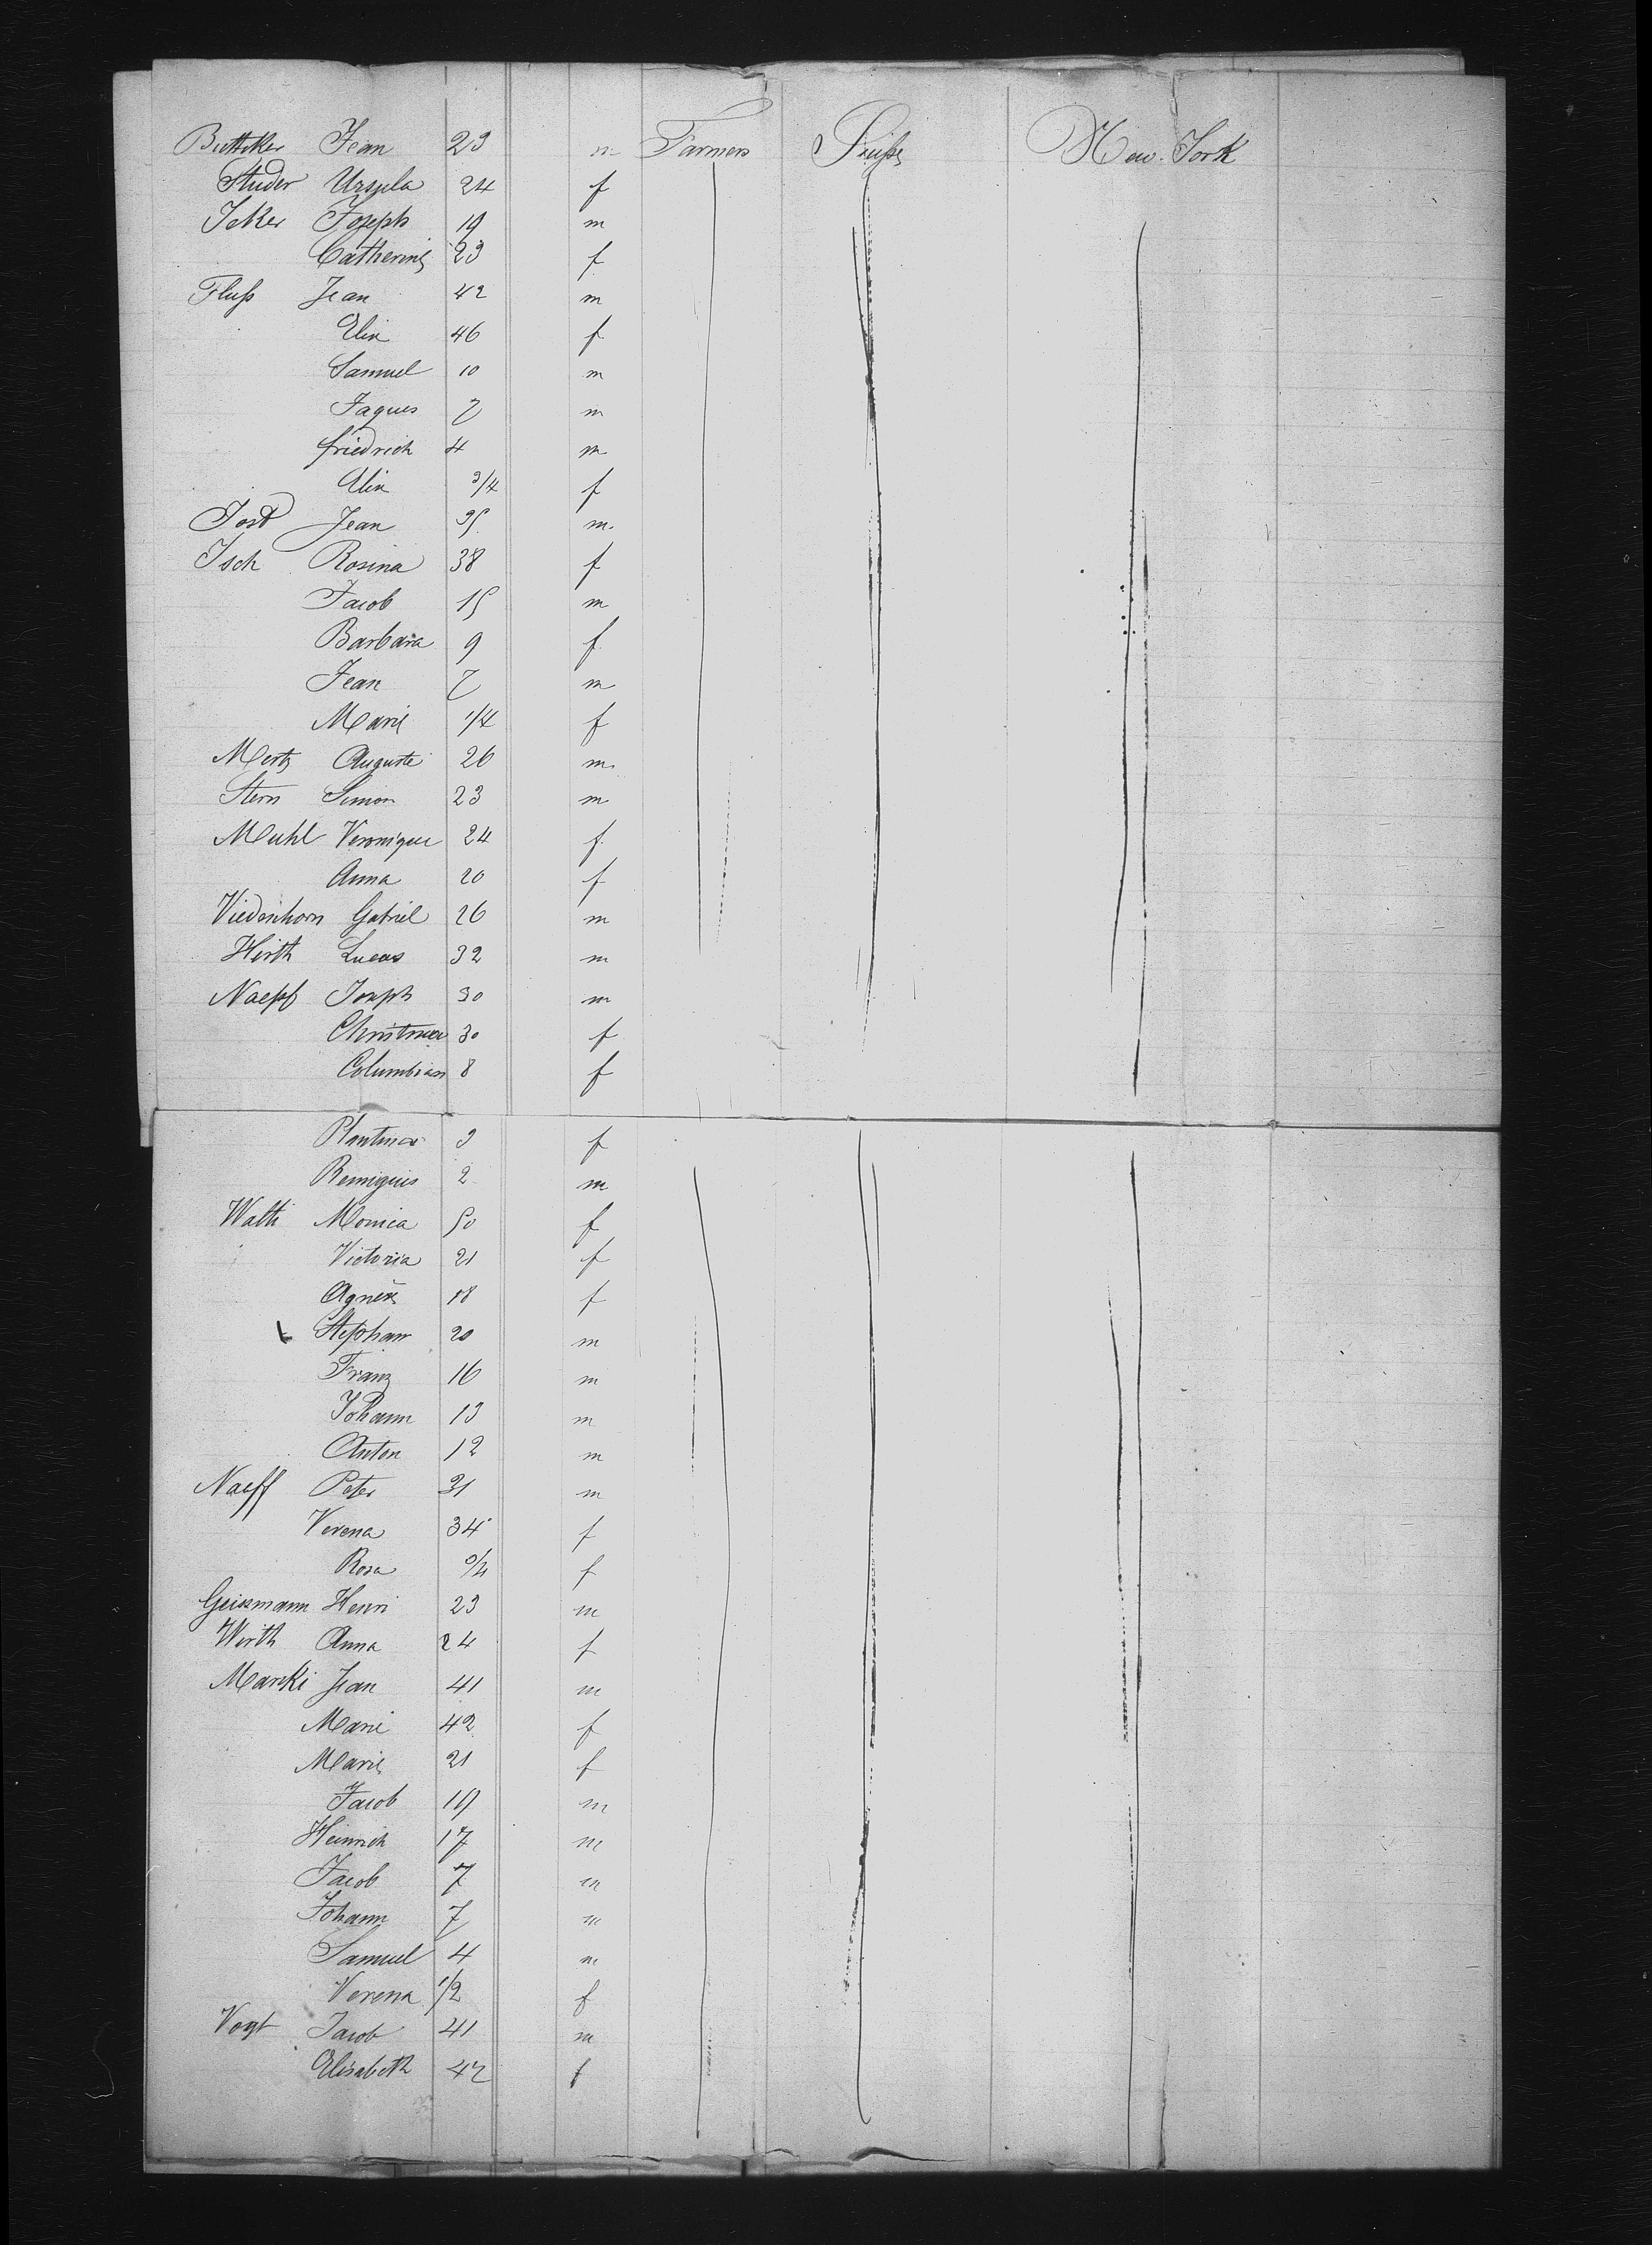 Butteker Jean 23 m Farmers Suisse New-York
Studer Ursula 24 f
Jcker Joseph 19 m
Catherine 23 f
Fluss Jean 42 m
Elin 46 f
Samuel 10 m
Jaques 7 m
friedrich 4 m
Elin 3/4 f
Jost Jean 35 m
Isch Rosina 38 f
Jacob 15 m
Barbara 9 f
Jean 7 m
Marie 1/4 f
Mertz Auguste 26 m
Stern Simon 23 m
Muhl Veronique 24 f
Anna 20 f
Viedenhorn Gabriel 26 m
Hirth Lucas 32 m
Naepf Joseph 30 m
Christina 30 f
Columbian 8 f
3 f
Remigius 2 m
Walti Monica 50 f
Victoria 21 f
Agnes 18 f
Stephan 20 m
Franz 16 m
Johann 13 m
Anton 12 m
Naeff Peter 31 m
Verena 34 f
Rosa f
Geissmann Henri 23 m
Wirth Anna 24 f
Marki Jean 41 m
Marie 42 f
Marie 21 f
Jacob 19 m
Heinrich 17 m
Jacob 7 m
Johann 7 m
Samuel 4 m
Verena 1/2 f
Vogt Jacob 41 m
Elisabeth 42 f